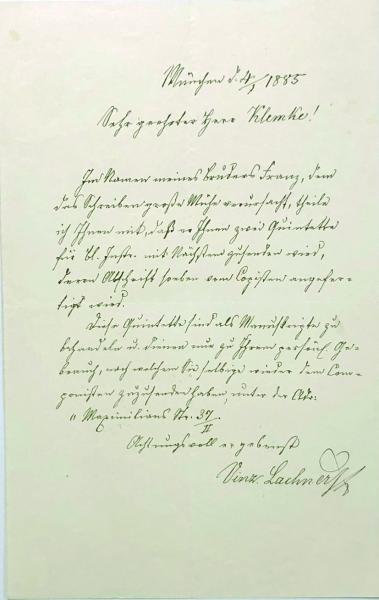 München d. 4/1 1885
Sehr geehrter Herr Klemke!
Im Namen meines Bruders Franz, dem
das Schreiben große Mühe verursacht, theile
ich Ihnen mit, daß er Ihnen zwei Quintette
für Bl. Instr. mit Nächstem zusenden wird,
deren Abschrift soeben vom Copisten angefer-
tigt wird.
Diese Quintette sind als Manuskripte zu
behandeln u. dienen nur zu Ihrem persönl. Ge-
brauch, nach welchem Sie selbige wieder dem Com-
ponisten zuzusenden haben, unter der Adr:
" Maximilians Str. 37/II
Achtungsvoll ergebenst
Vinz. Lachner